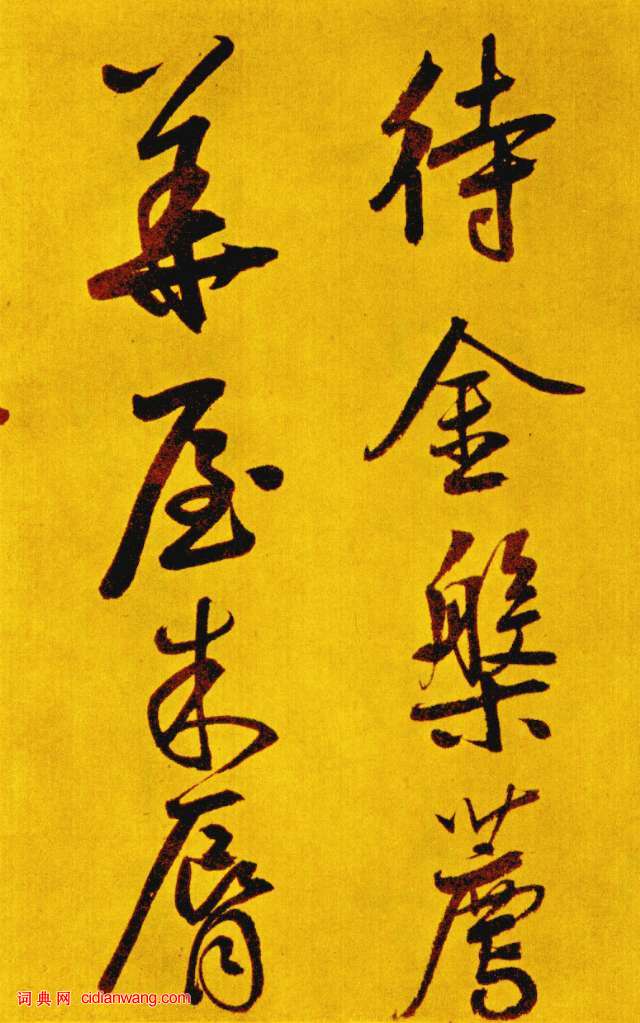 待金槃薦
華屋朱脣
词典网 cidianwang.com